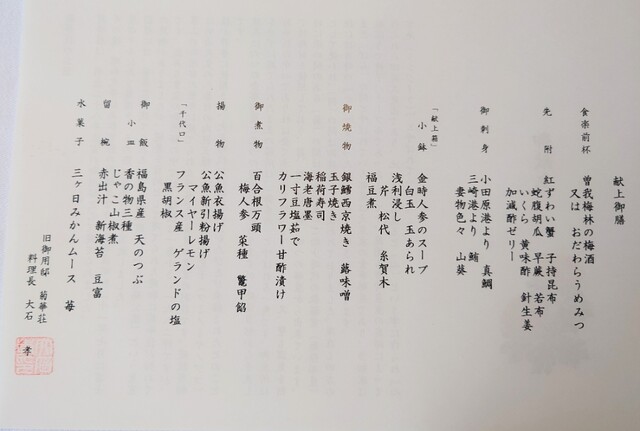 献上御膳
食楽前杯
曽我梅林の梅酒
又は おだわらうめみつ
先附
紅ずわい蟹 子持昆布
蛇腹胡瓜 早蕨 若布
いくら 黄味酢 針生姜
加減酢ゼリー
御刺身
小田原港より 真鯛
三崎港より 鮪
妻物色々 山葵
「献上箱」
小鉢
金時人参のスープ
白玉 玉あられ
浅利浸し
芹 松代 糸賀木
福豆煮
御焼物
銀鱈西京焼き 蕗味噌
玉子焼き
稲荷寿司
海老唐墨
一寸豆塩茹で
カリフラワー甘酢漬け
御煮物
百合根万頭
梅人参 菜種 鼈甲餡
揚物
公魚衣揚げ
公魚新引粉揚げ
マイヤーレモン
「千代口」
フランス産 ゲランドの塩
黒胡椒
御飯
福島県産 天のつぶ
小皿
香の物三種
じゃこ山椒煮
留椀
赤出汁 新海苔 豆富
水菓子
三ヶ日みかんムース 苺
旧御用邸 菊華荘
料理長 大石
孝